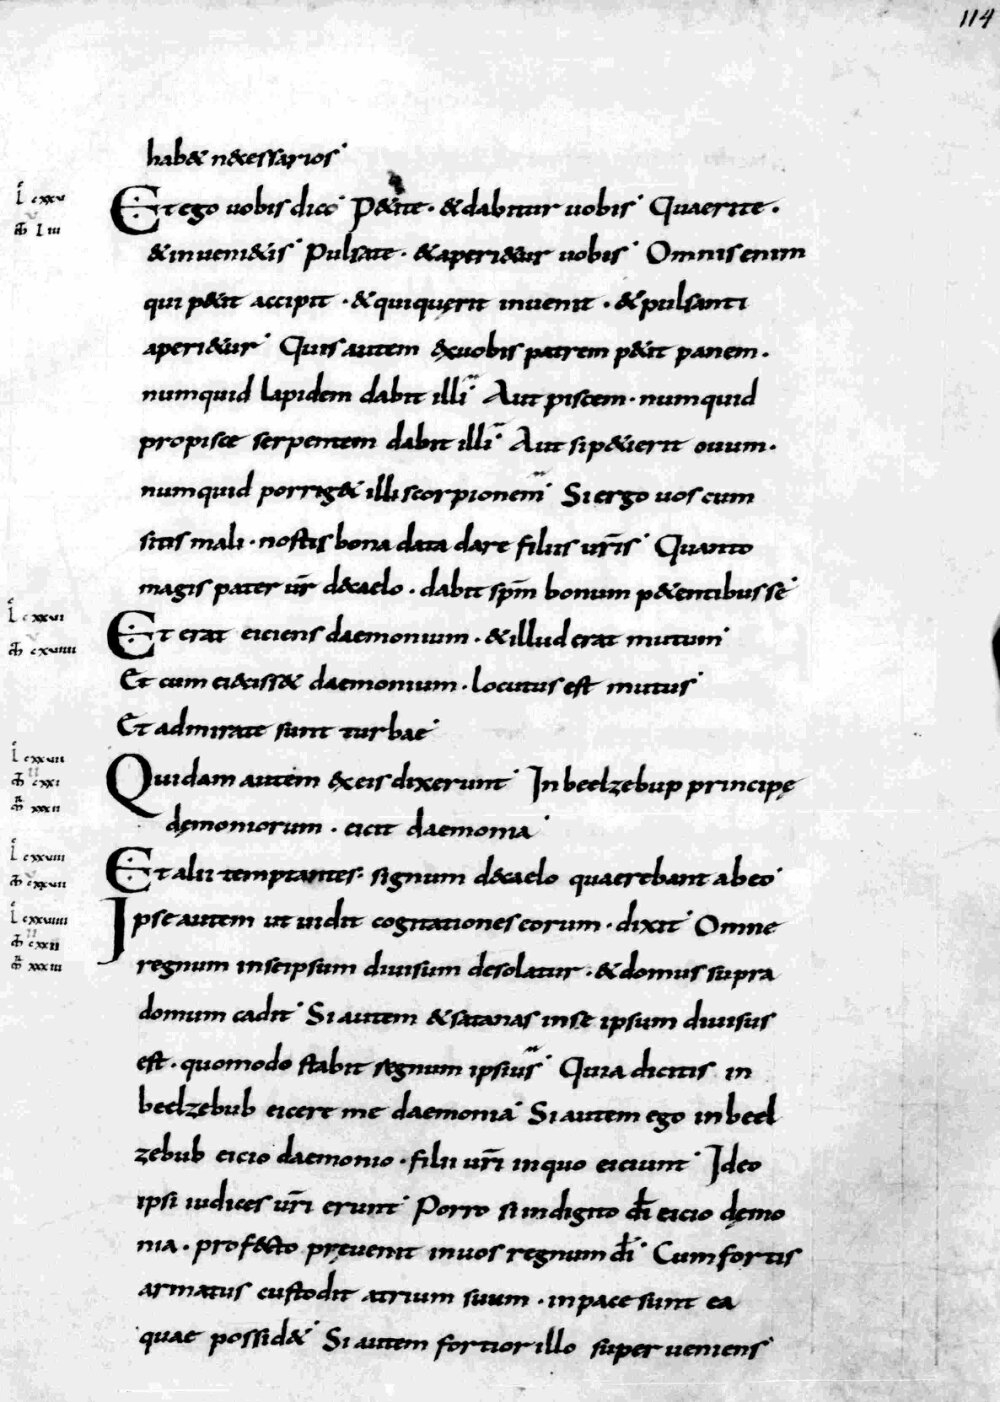 114
hab& n&cessarios
L cxxv
Et ego uobis dico P&ite · & dabitur uobis Quaerite ·
M LIII
& inueni&is Pulsate · & aperi&ur uobis Omnis enim
qui p&it accipit · & qui quęrit inuenit · & pulsanti
aperi&ur Quis autem ex uobis patrem p&it panem ·
numquid lapidem dabit illi Aut piscem · numquid
pro pisce serpentem dabit illi Aut si p&ierit ouum ·
numquid porrig& illi scorpionem Si ergo uos cum
sitis mali · nostis bona data dare filiis ur̄is Quanto
magis pater ur̄ d& caelo · dabit sp̄m bonum p&entibus se
L cxxvi
Et erat eiciens daemonium · & illud erat mutum
M cxviiii
Et cum ei&ciss& daemonium · locutus est mutus
Et admirate sunt turbae
L cxxvii
Quidam autem ex eis dixerunt In beelzebup principę
M cxxi
MR xxxii
dęmoniorum · eicit daemonia
L cxxviii
Et alii temptantes · signum d& caelo quaerebant ab eo
M cxxvii
L cxxviiii
Ipse autem ut uidit cogitationes eorum · dixit Omne
M cxxii
MR xxxiii
regnum in seipsum diuisum desolatur · & domus supra
domum cadit Si autem & satanas in se ipsum diuisus
est · quomodo stabit regnum ipsius Quia dicitis in
beelzebub eicere me daemonia Si autem ego in beel
zebub eicio daemonio · filii ur̄i in quo eiciunt Ideo
ipsi iudices ur̄i erunt Porro si in digito dī eicio dęmo
nia · prof&cto pręuenit in uos regnum dī Cum fortis
armatus custodit atrium suum · in pace sunt ea
quae possid& Si autem fortior illo superueniens